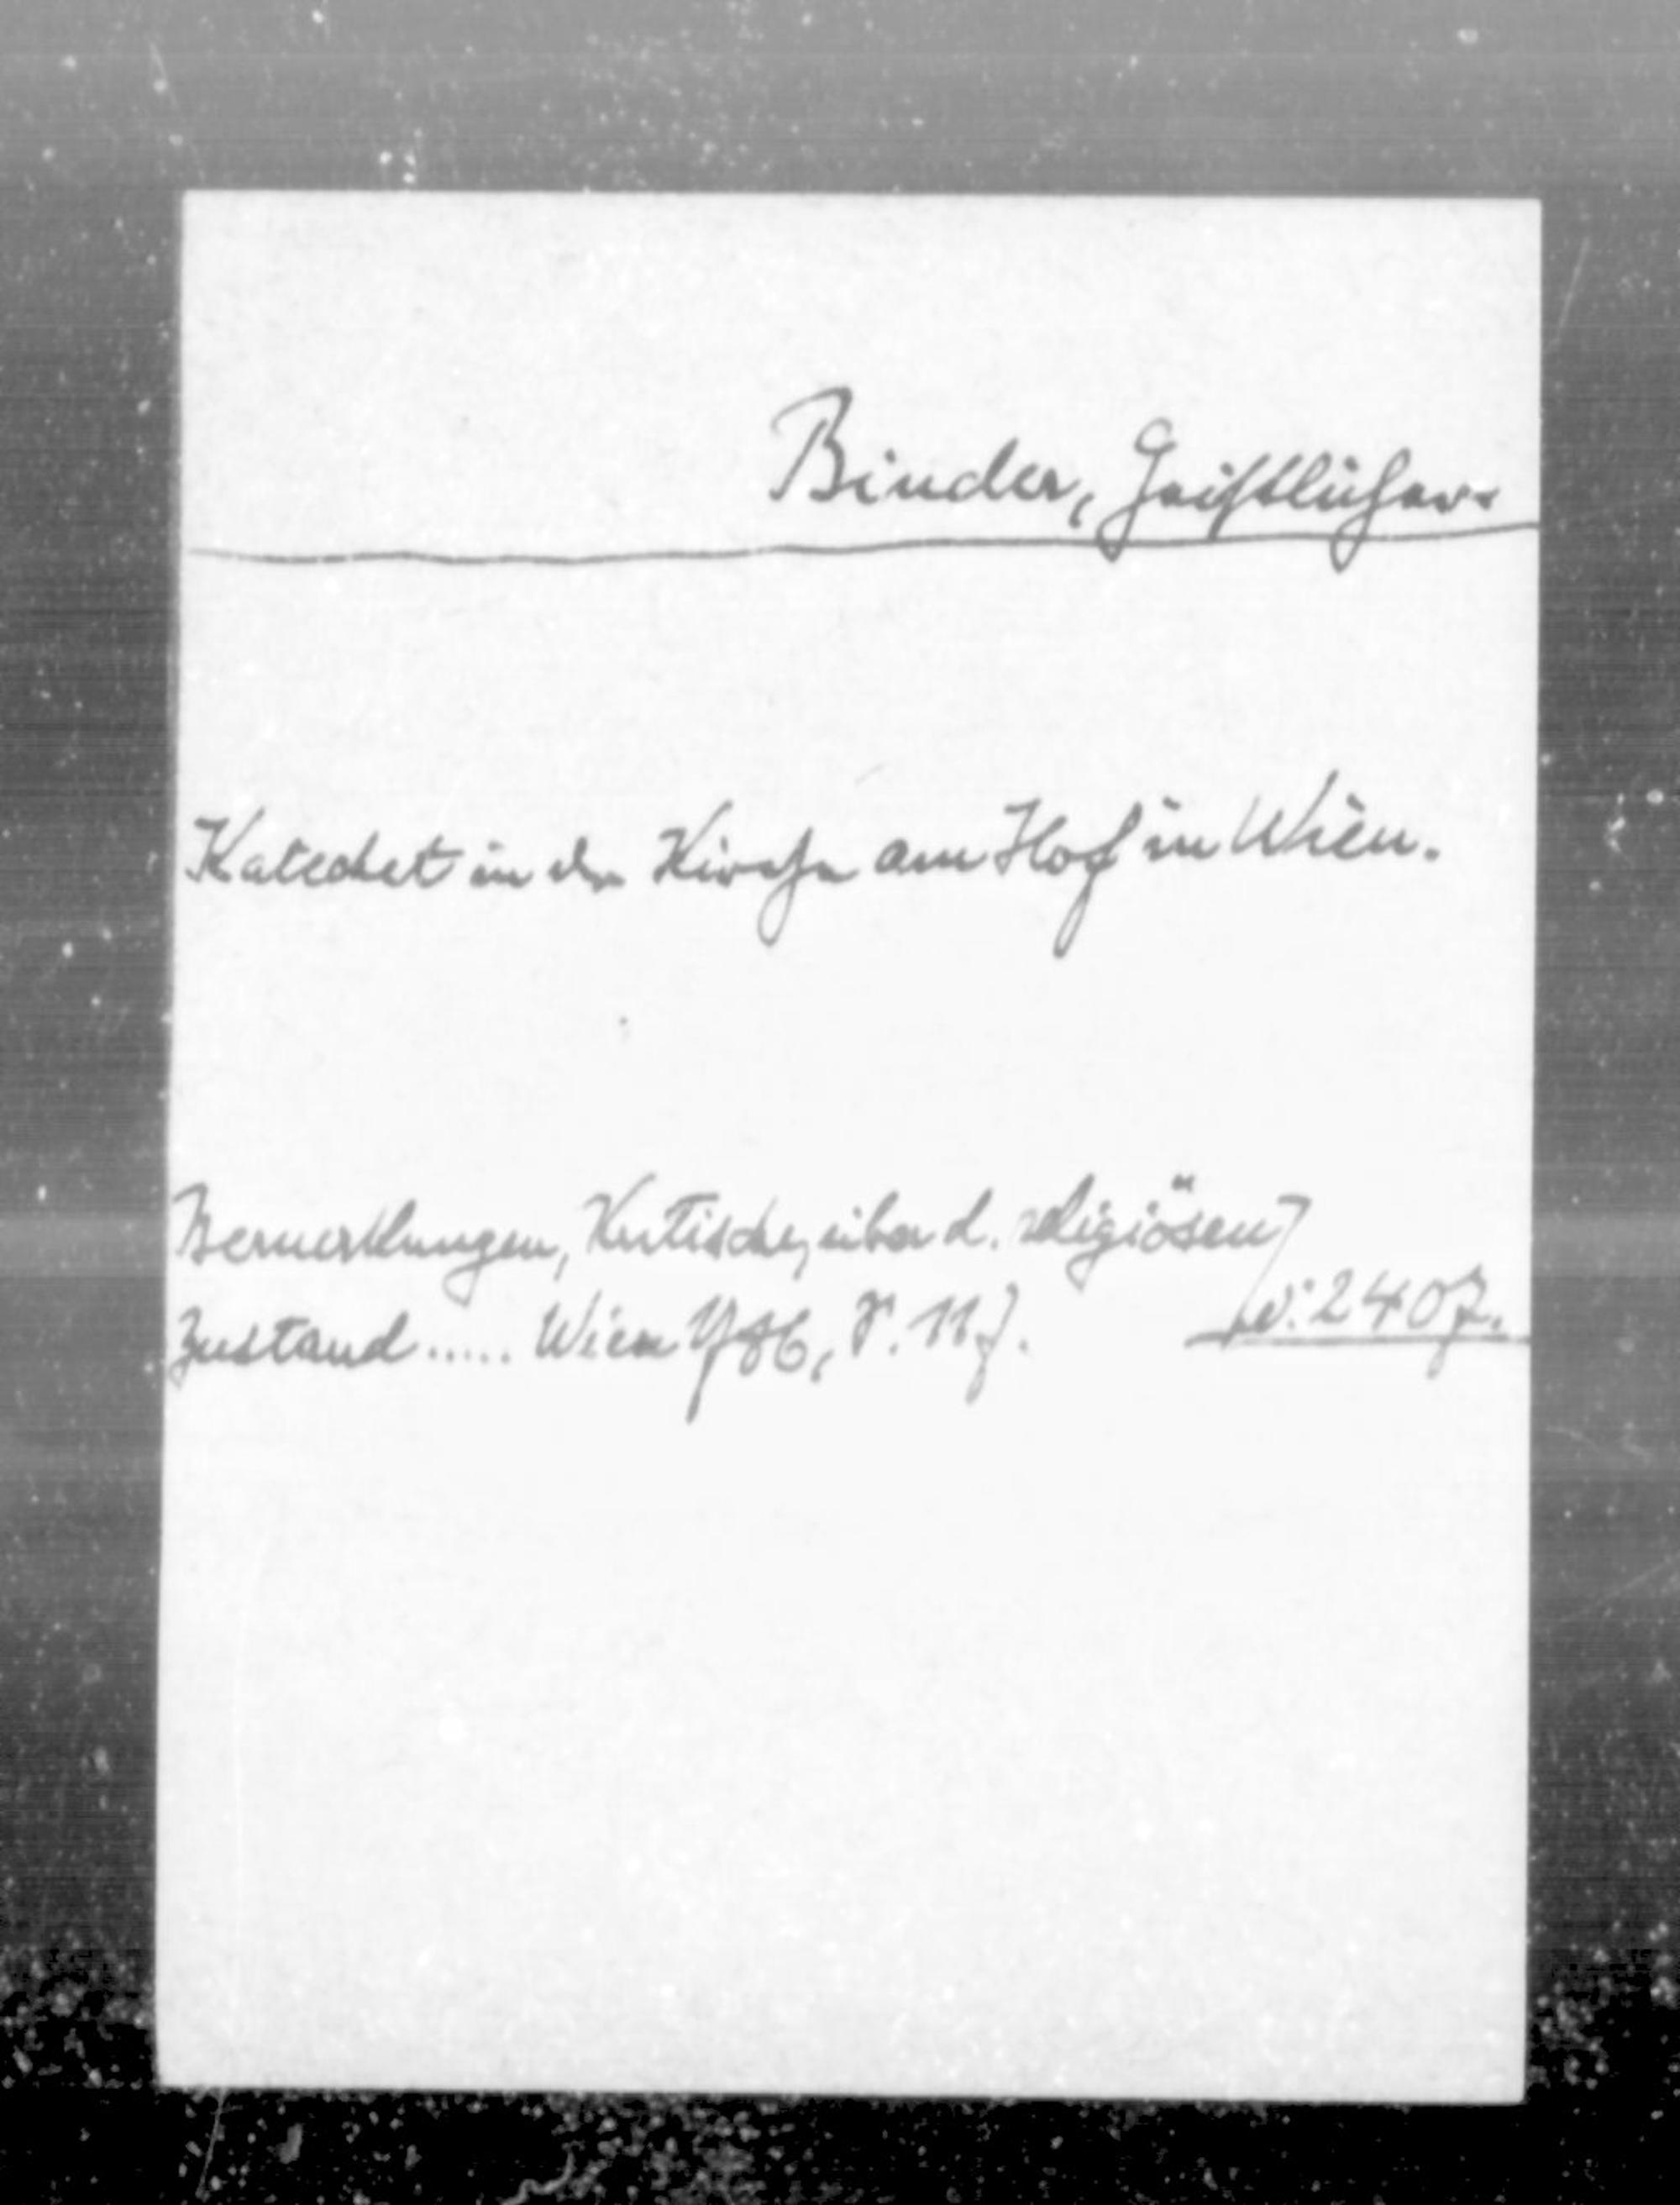 Binder, Geistlicher.
Katechet in der Kirche am Hof in Wien.
Bemerkungen, Kritische, über d. religiösen
Zustand ..... Wien 786, S. 117. 2407.